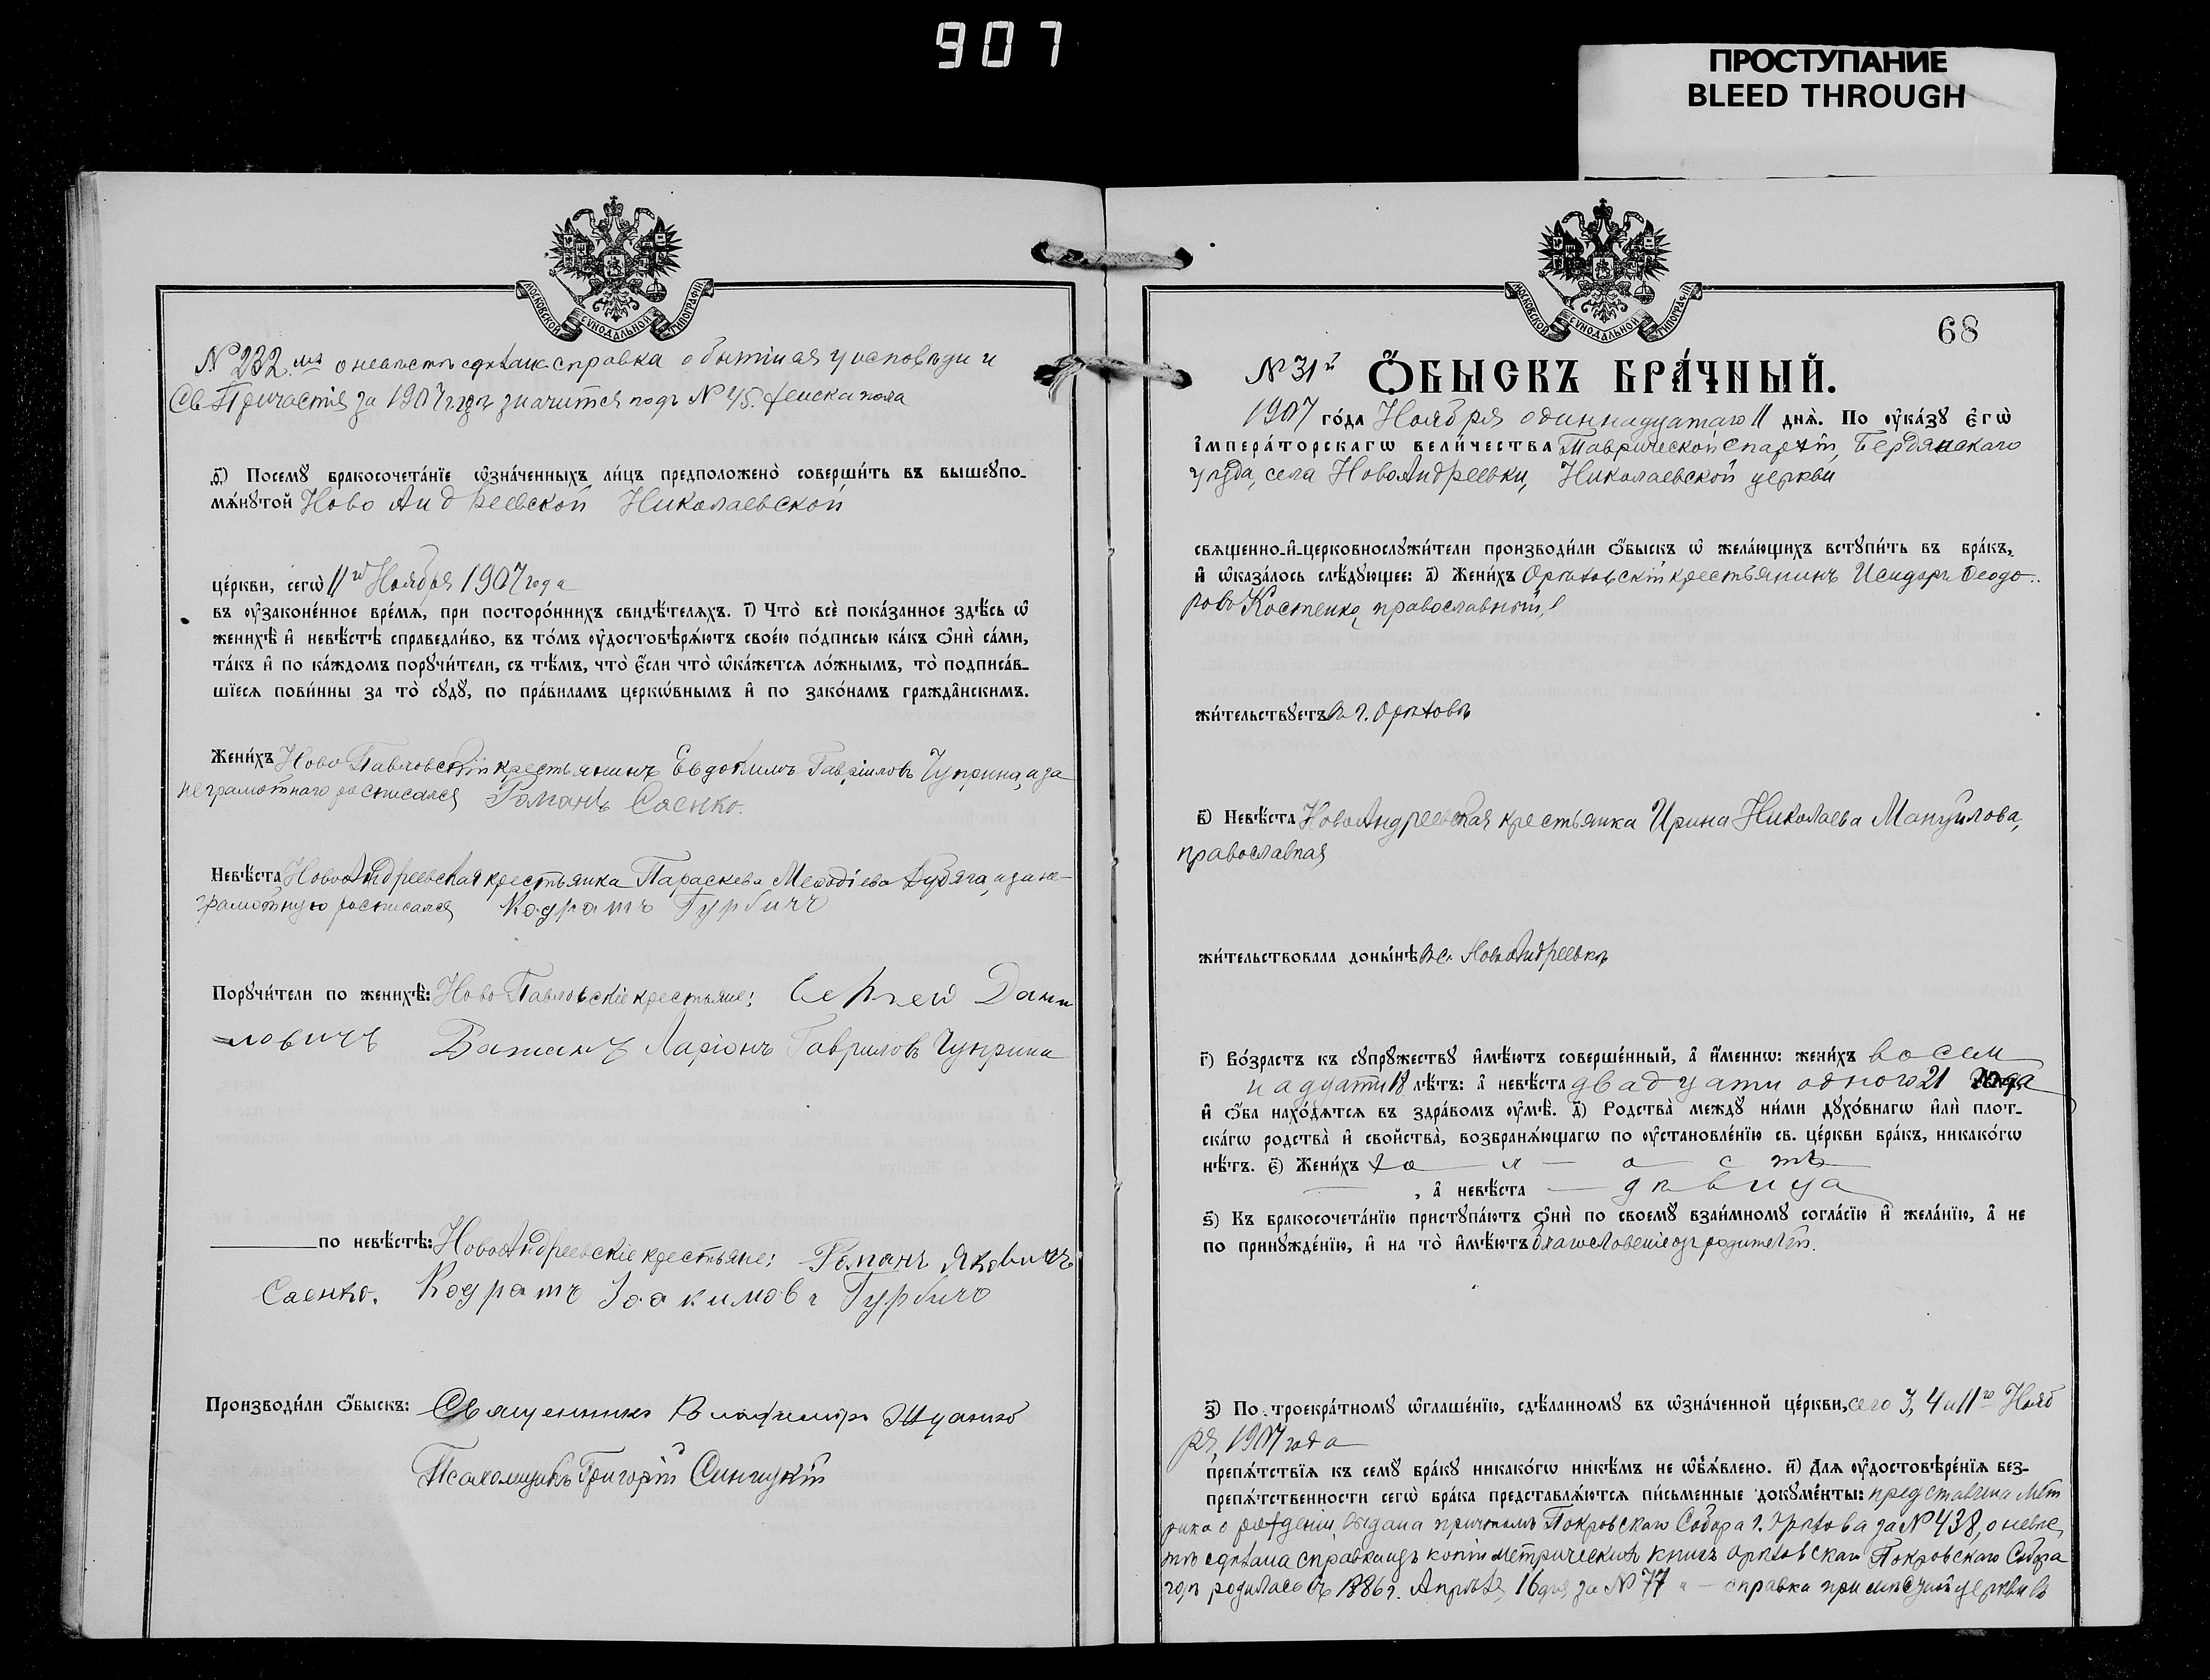 907
ПРОСТУПАНИЕ
BLEED THROUGH
МОСКОВСКОЙ СѴНОДАЛЬНОЙ ТИПОГРАФІИ
№ 232 о невѣстѣ сдѣлана справка о бытіи ея у исповѣди и
Св. Причастія за 1907 годъ значится подъ № 45. женска пола
д҃) Посемꙋ бракосочета́нїе ѡ҆зна́ченныхъ ли́цъ предположено̀ соверши́ть въ вышеꙋпо-
мѧ́нꙋтой Ново Андреевской Николаевской
це́ркви, сегѡ̀ 11го Ноября 1907 года
въ ᲂу҆законе́нное вре́мѧ, при посторо́ннихъ свидѣ́телѧхъ. і҃) Что̀ всѐ пока́занное здѣ́сь ѡ҆
женихѣ̀ и҆ невѣ́стѣ справедли́во, въ то́мъ ᲂу҆достовѣрѧ́ютъ свое́ю по́дписью ка́къ ѻ҆нѝ са́ми,
та́къ и҆ по ка́ждомъ порꙋчи́тели, съ тѣ́мъ, что̀ є҆́сли что̀ ѡ҆ка́жетсѧ ло́жнымъ, то̀ подписа́в-
шїесѧ пови́нны за то̀ сꙋдꙋ̀, по пра́виламъ церкѡ́внымъ и҆ по зако́намъ гражда́нскимъ.
Жени́хъ Ново Павловскій крестьянинъ Евдокимъ Гавріиловъ Чуприна, а за
неграмотнаго росписался Романъ Саенко.
Невѣ́ста НовоАндреевская крестьянка Параскева Меѳодіева Дубяга, а за не-
грамотную росписался Кодратъ Гурбичъ
Порꙋчи́тели по женихѣ̀: Ново Павловскіе крестьяне: Сергей Дани
ловичъ Важанъ Ларіонъ Гавриловъ Чуприна
по невѣ́стѣ: НовоАндреевскіе крестьяне: Романъ Яковичъ
Саенко. Кодратъ Іоакимовъ Гурбичъ
Производи́ли ѻ҆́быскъ: Священникъ Владиміръ
Псаломщикъ Григорій Синицкій
МОСКОВСКОЙ СѴНОДАЛЬНОЙ ТИПОГРАФІИ
68
№ 31й Ѻ҆́БЫСКЪ БРА́ЧНЫЙ.
1907 го́да Ноября одиннадцатаго 11 днѧ̀. По ᲂу҆ка́зꙋ є҆гѡ̀
і҆мпера́торскагѡ вели́чества Таврической епархіи, Бердянскаго
уѣзда, села НовоАндреевки, Николаевской церкви
свѧщенно-и҆-церковнослꙋжи́тели производи́ли ѻ҆́быскъ ѡ҆ жела́ющихъ встꙋпи́ть въ бра́къ,
и҆ ѡ҆каза́лось слѣ́дꙋющее: а҃) Жени́хъ Орѣховскій крестьянинъ Исидоръ Ѳеодо-
ровъ Костенко, православный,
жи́тельствꙋетъ въ г. Орѣховѣ
в҃) Невѣ́ста НовоАндреевская крестьянка Ирина Николаева Мануйлова,
православная
жи́тельствовала доны́нѣ въ с. НовоАндреевкѣ
г҃) Во́зрастъ къ сꙋпрꙋжествꙋ и҆мѣ́ютъ соверше́нный, а҆ и҆́меннѡ: жени́хъ восем
надцати 18 лѣ́тъ: а҆ невѣ́ста двадцати одного 21 года
и҆ ѻ҆́ба нахо́дѧтсѧ въ здра́вомъ ᲂу҆мѣ̀. д҃) Родства̀ междꙋ ни́ми дꙋхо́внагѡ и҆лѝ плот-
ска́гѡ родства̀ и҆ свойства̀, возбранѧ́ющагѡ по ᲂу҆становле́нїю св. це́ркви бра́къ, никако́гѡ
нѣ́тъ. є҃) Жени́хъ холостъ
, а҆ невѣ́ста дѣвица
ѕ҃) Къ бракосочета́нїю пристꙋпа́ютъ ѻ҆нѝ по своемꙋ̀ взаи́мномꙋ согла́сїю и҆ жела́нїю, а҆ не
по принꙋжде́нїю, и҆ на то̀ и҆мѣ́ютъ благословеніе отъ родителей.
з҃) По троекра́тномꙋ ѡ҆глаше́нїю, сдѣ́ланномꙋ въ ѡ҆зна́ченной це́ркви, сего 3, 4 и 11го Нояб
ря, 1907 года
препѧ́тствїѧ къ семꙋ̀ бра́кꙋ никако́гѡ никѣ́мъ не ѡ҆б̾ѧ́влено. и҃) Длѧ ᲂу҆достовѣре́нїѧ без-
препѧ́тственности сегѡ̀ бра́ка представлѧ́ютсѧ пи́сьменные докꙋме́нты: представлена мет
рика о рожденіи, выдана причтомъ Покровскаго Собора г. Орѣхова за № 438, о невѣс
тѣ сдѣлана справка изъ копіи метрическихъ книгъ Орѣховскаго Покровскаго Собора
родилась въ 1886 г. Апрѣля 16 дня за № 77 справка при церкви въ